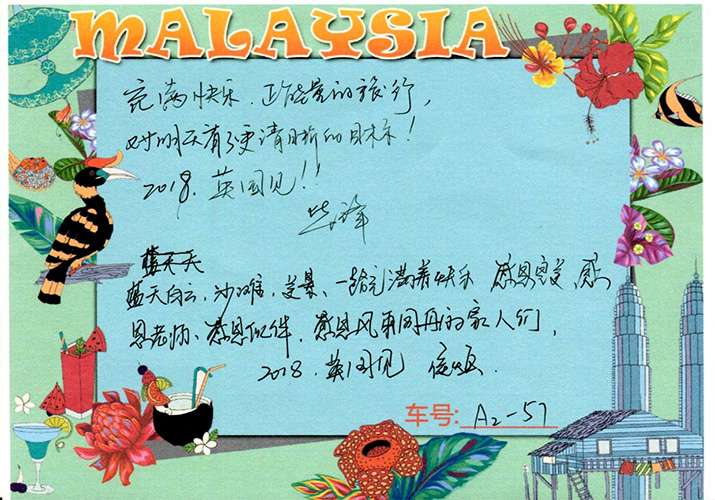 MALAYSIA
充满快乐、正能量的旅行，
对明天有了更清晰的目标！
2018. 英国见!!
蓝天白云，沙滩，美景、一路充满着快乐 感恩 感
恩老师、感恩伙伴，感恩风雨同舟的家人们，
2018. 英国见
车号: A2-57